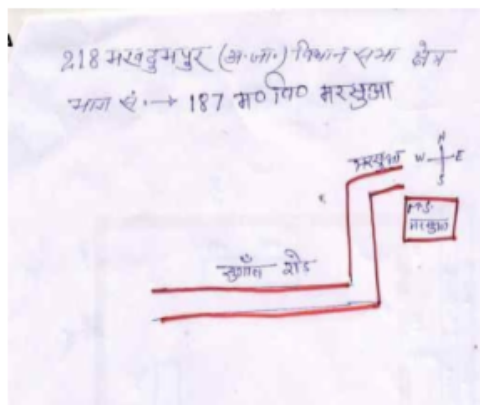 218 मखदुमपुर (अ.जा.) विधान सभा क्षेत्र
भाग सं. → 187 म० वि० भरसुआ
भरसुआ
N
W E
S
M.S.
भरसुआ
रोड